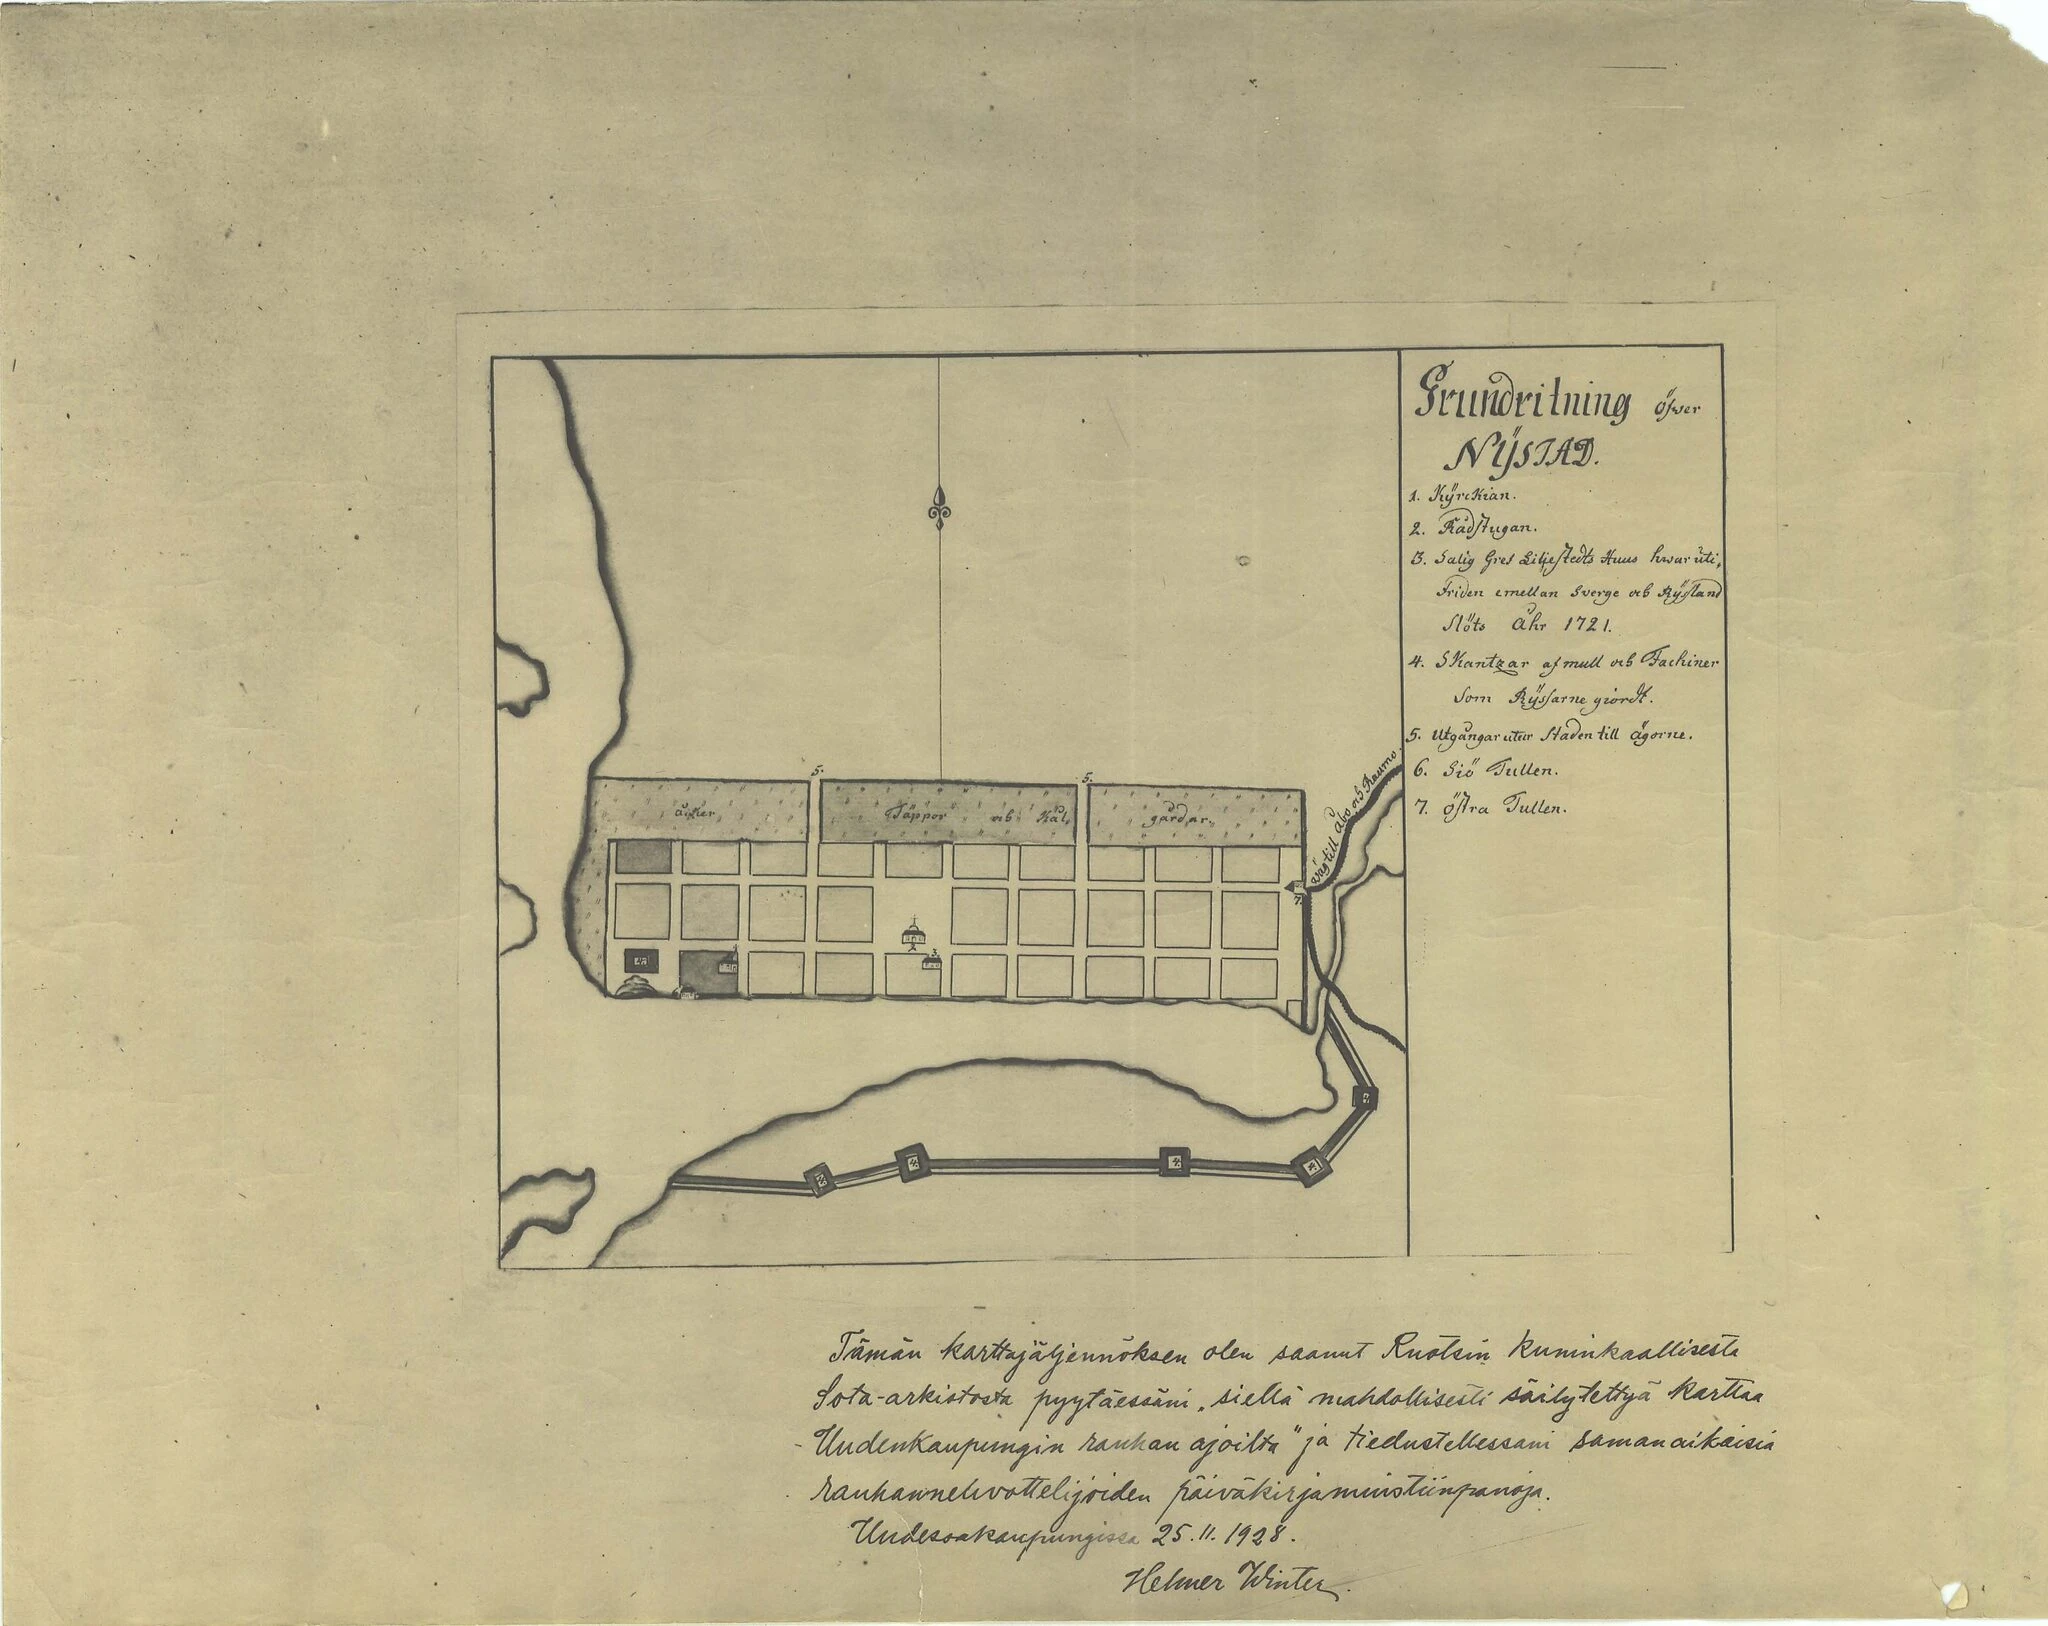 Grundritning öfwer
NŸSTAD.
1. Kÿrckian.
2. Rådstugan.
3. Salig Gref Liljestedts Huus hwaruti,
Friden emellan Sverge och Rÿssland
Slöts åhr 1721.
4. Skantzar af mull och Fachiner
Som Rÿssarne giordt.
5. Utgångar utur Staden till ägorne.
6. Siö Tullen.
7. Östra Tullen.
Väg till Åbo och Raumo.
5.
5.
åcker
Täppor och Kål
gårdar
7.
3
4
4
4
4
Tämän karttajäljennöksen olen saanut Ruotsin Kuninkaallisesta
Sota-arkistosta pyytäessäni „siellä mahdollisesti säilytettyä karttaa
Uudenkaupungin rauhan ajoilta" ja tiedustellessani samanaikaisia
rauhanneuvottelijoiden päiväkirjamuistiinpanoja.
Uudessakaupungissa 25.11.1928.
Helmer Winter.